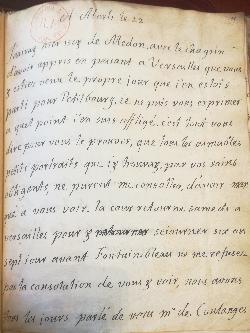 A Marli le 22
J'arrivay hier icy de Medon, avec le chagrin
d'avoir appris en passant a Versailles que vous
y estiez venu le propre jour que j'en estois
parti pour Petitbourg, je ne puis vous exprimer
a quel point j'en suis affligé. c'est tout vous
dire pour vous le prouver, que tous les aimables
petits portraits que j'y trouvay, par vos soins
obligents, ne purent me consoler, d'avoir
a vous voir. la cour retourne samedi a
versailles pour y sejourner six ou
sept jour avant Fontainebleau ne me refusez
pas la consolation de vous y voir, nous avons
tous les jours parlé de vous me. de Coulanges